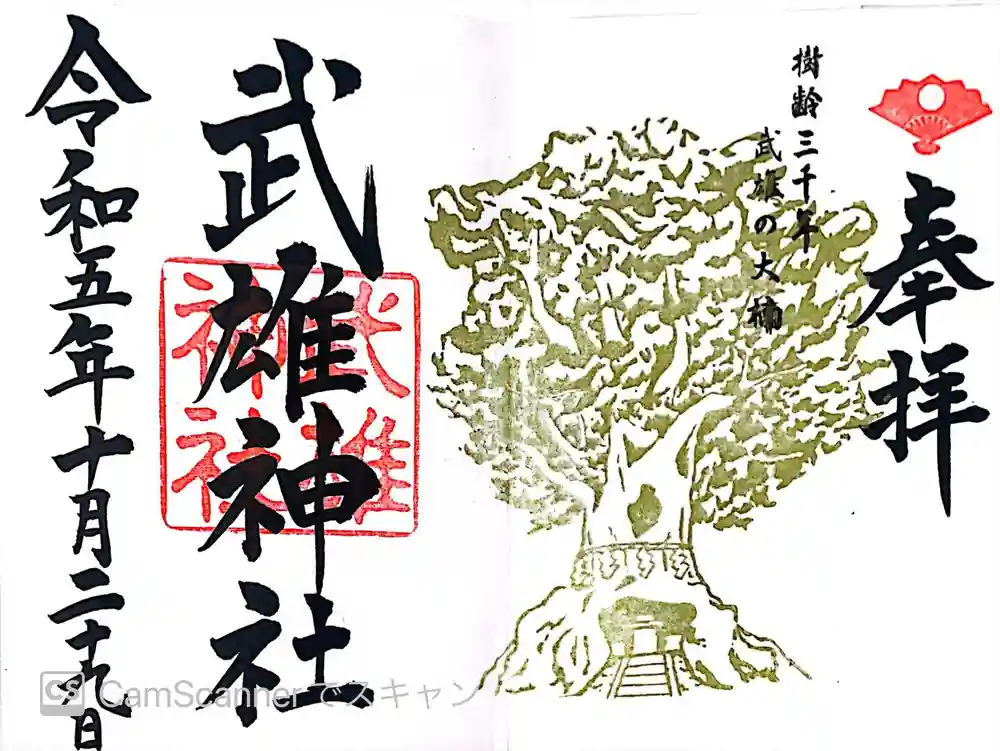 奉拝
樹齢三千年
武雄の大楠
武雄神社
武雄
神社
令和五年十月二十九日
CS CamScannerでスキャン